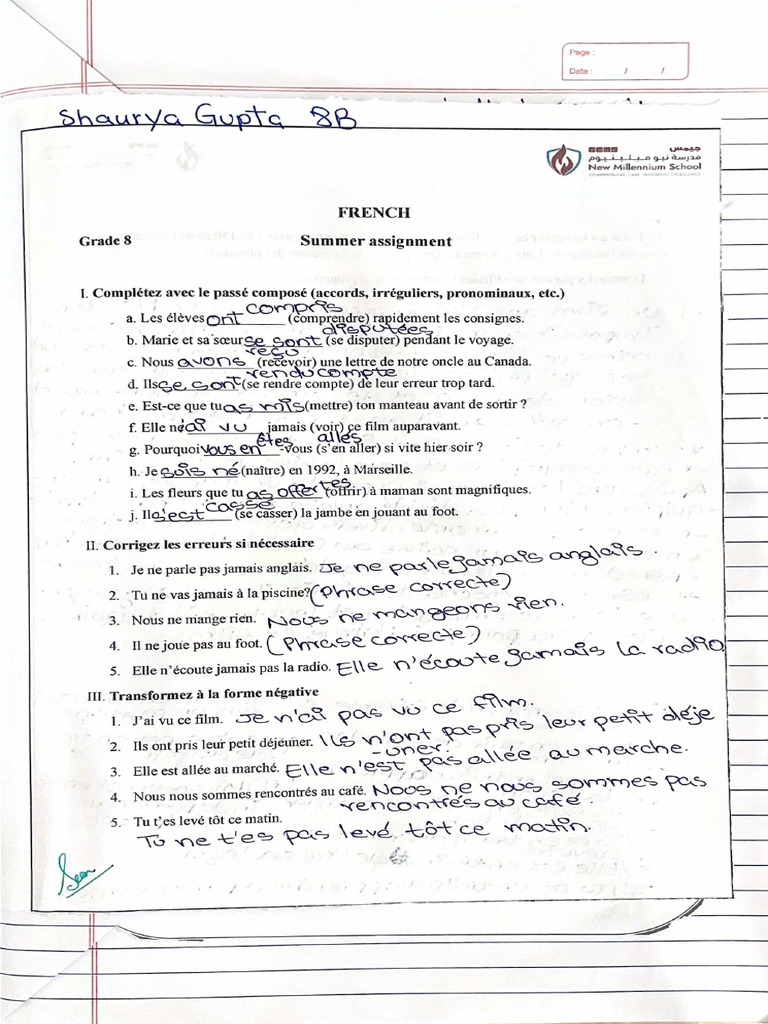 Page :
Date : / /
Shaurya Gupta 8B
GEMS جيمس
مدرسة نيو ميلينيوم
New Millennium School
FRENCH
Grade 8 Summer assignment
I. Complétez avec le passé composé (accords, irréguliers, pronominaux, etc.)
a. Les élèves ont compris (comprendre) rapidement les consignes.
b. Marie et sa sœur se sont disputées (se disputer) pendant le voyage.
c. Nous avons reçu (recevoir) une lettre de notre oncle au Canada.
d. Ils se sont rendu compte (se rendre compte) de leur erreur trop tard.
e. Est-ce que tu as mis (mettre) ton manteau avant de sortir ?
f. Elle n'ai vu jamais (voir) ce film auparavant.
g. Pourquoi vous en êtes allés -vous (s'en aller) si vite hier soir ?
h. Je suis né (naître) en 1992, à Marseille.
i. Les fleurs que tu as offertes (offrir) à maman sont magnifiques.
j. Il s'est cassé (se casser) la jambe en jouant au foot.
II. Corrigez les erreurs si nécessaire
1. Je ne parle pas jamais anglais. Je ne parle jamais anglais.
2. Tu ne vas jamais à la piscine? (Phrase correcte)
3. Nous ne mange rien. Nous ne mangeons rien.
4. Il ne joue pas au foot. (Phrase correcte)
5. Elle n'écoute jamais pas la radio. Elle n'écoute jamais la radio
III. Transformez à la forme négative
1. J'ai vu ce film. Je n'ai pas vu ce film.
2. Ils ont pris leur petit déjeuner. Ils n'ont pas pris leur petit déje
-uner.
3. Elle est allée au marché. Elle n'est pas allée au marche.
4. Nous nous sommes rencontrés au café. Nous ne nous sommes pas
rencontrés au café.
5. Tu t'es levé tôt ce matin.
Tu ne t'es pas levé tôt ce matin.